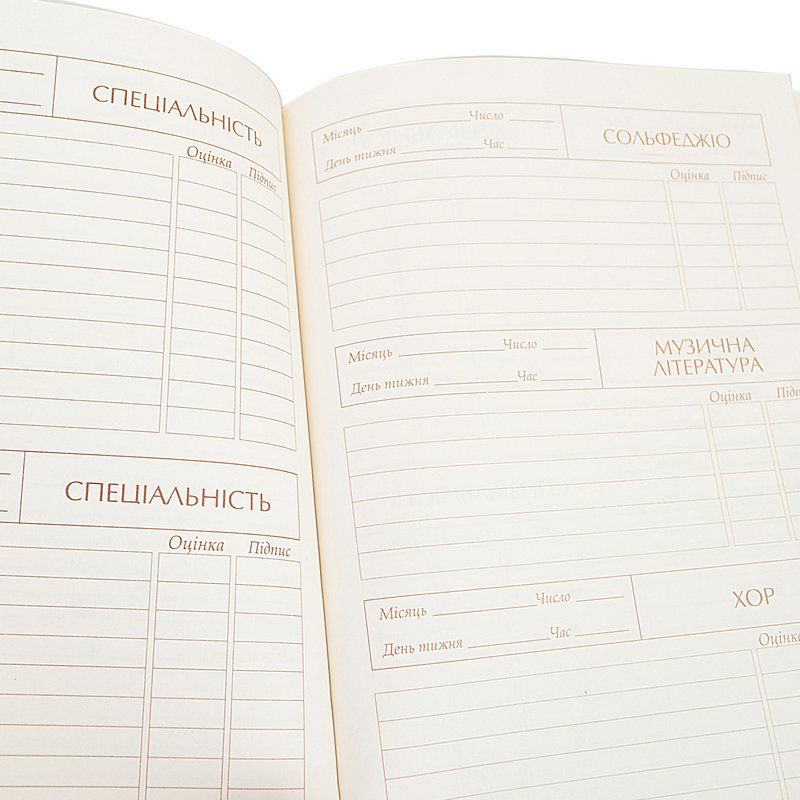 СПЕЦІАЛЬНІСТЬ
Оцінка Підпис
СПЕЦІАЛЬНІСТЬ
Оцінка Підпис
Місяць Число
День тижня Час
СОЛЬФЕДЖІО
Оцінка Підпис
Місяць Число
День тижня Час
МУЗИЧНА
ЛІТЕРАТУРА
Оцінка
Місяць Число
День тижня Час
ХОР